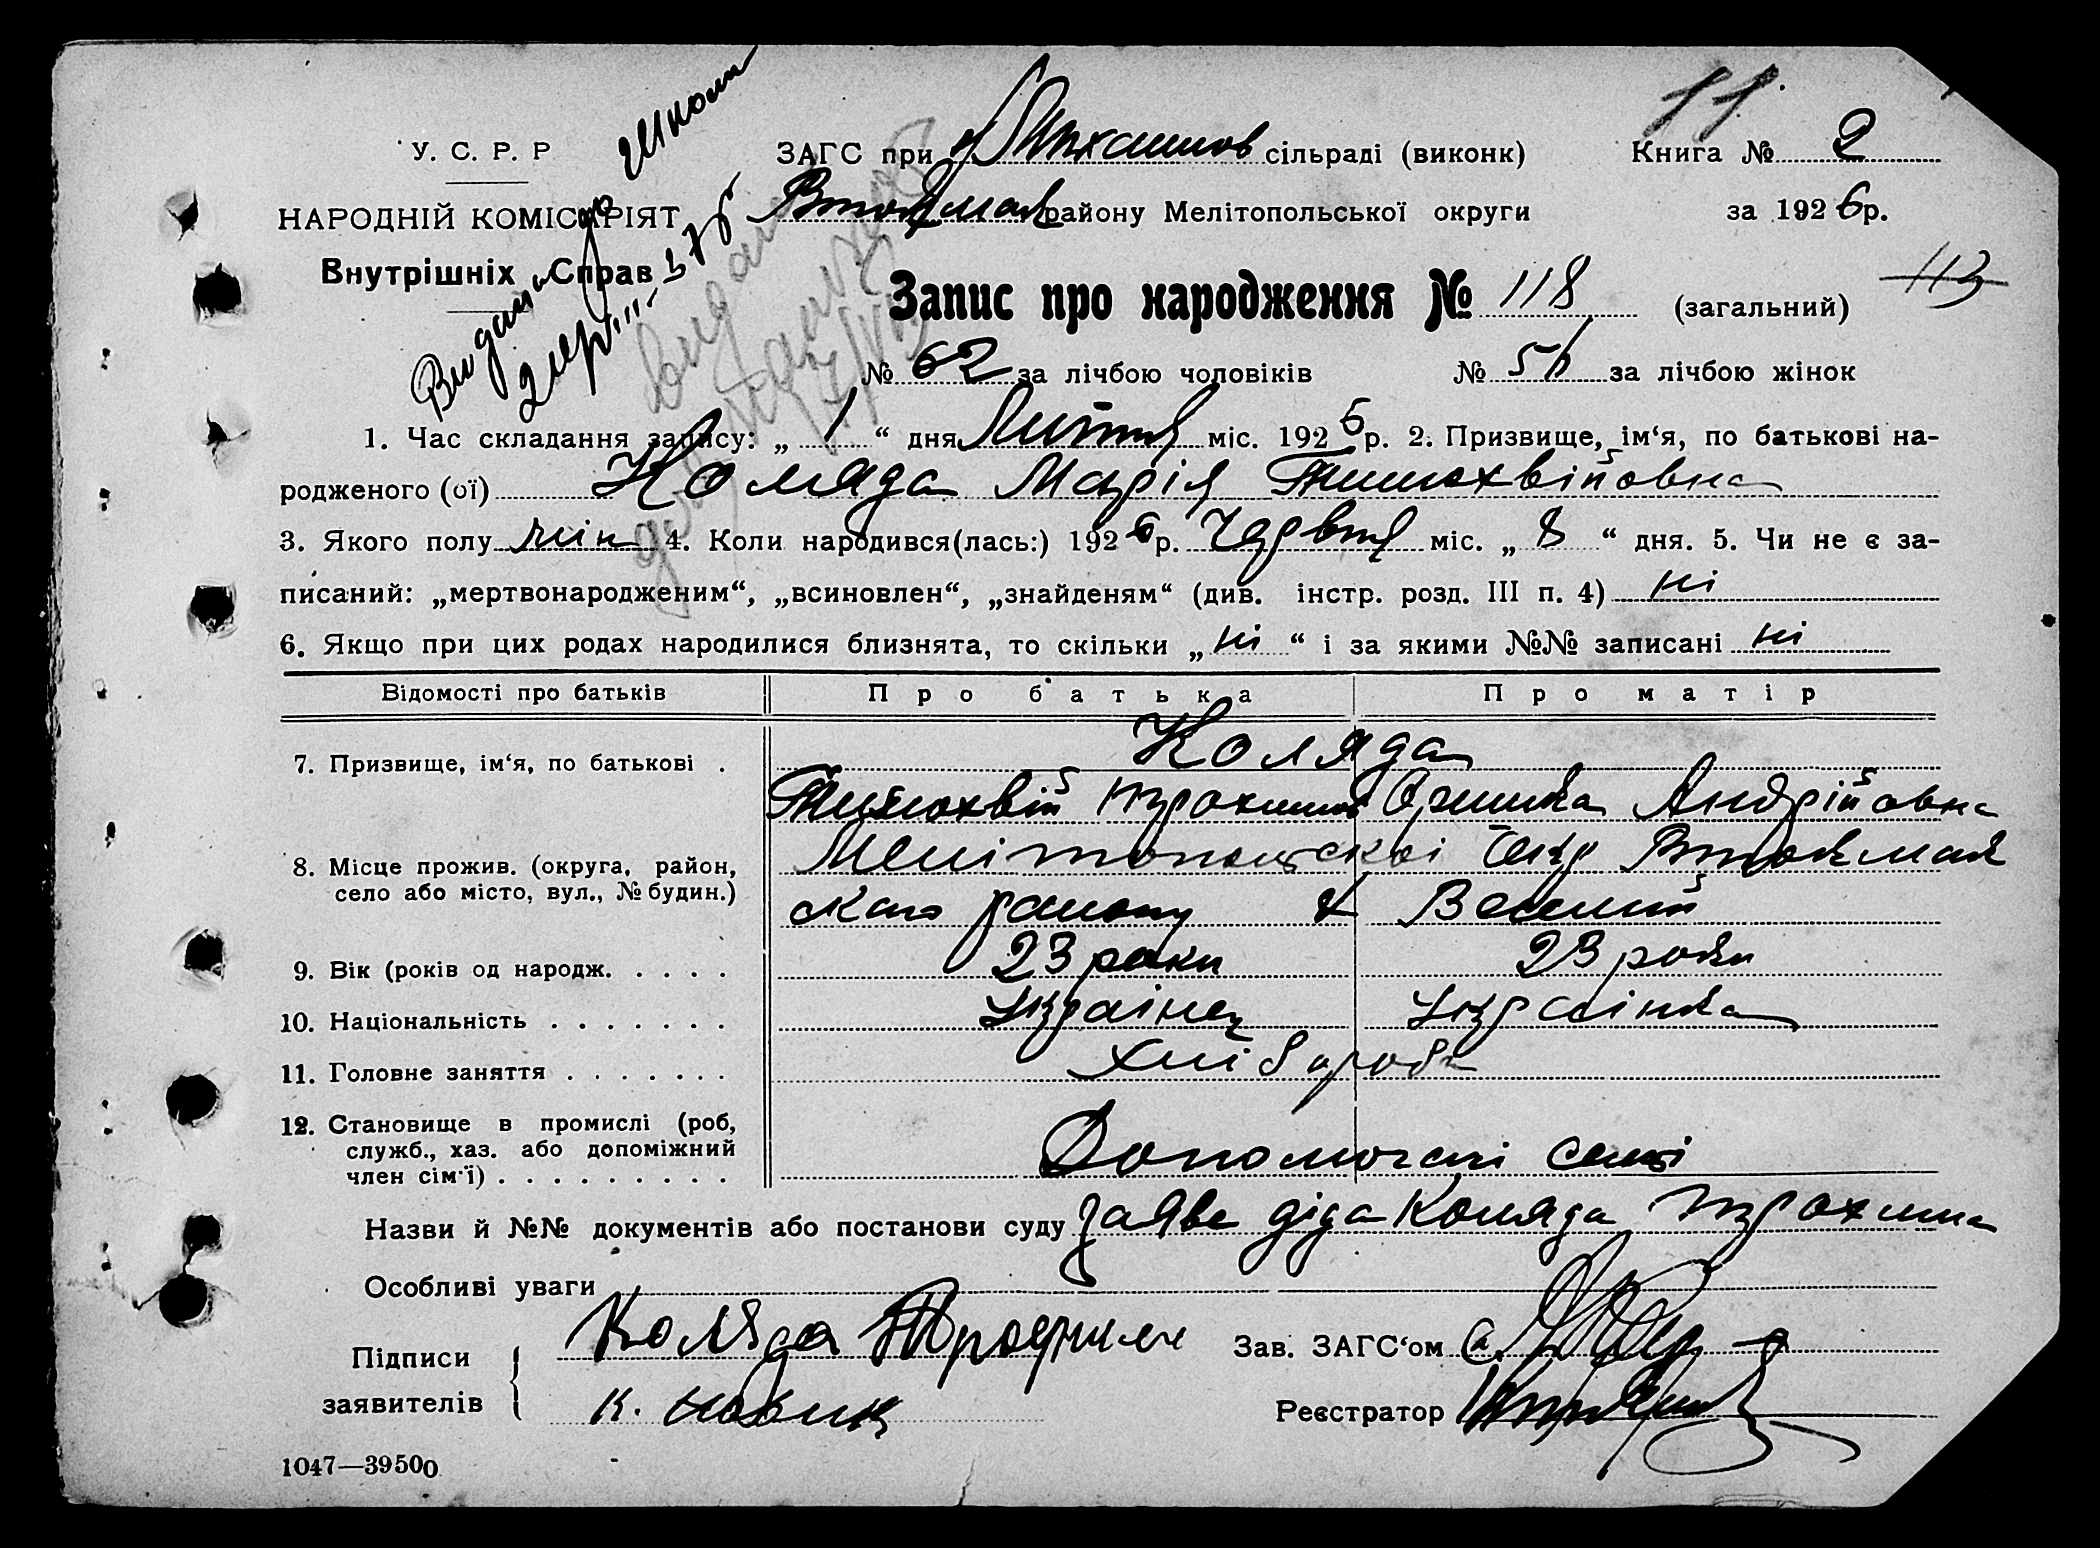 У. С. Р. Р
НАРОДНІЙ КОМІСАРІЯТ
Внутрішніх Справ
ЗАГС при Михайлов сільраді (виконк)
Книга № 2
Втокмак району Мелітопольської округи
за 1926 р.
Запис про народження № 118 (загальний) 113
№ 62 за лічбою чоловіків № 56 за лічбою жінок
1. Час складання запису: „ 1 “ дня Липня міс. 1926 р. 2. Призвище, ім‘я, по батькові на-
родженого (ої) Коляда Марія Тимохвійовна
3. Якого полу жін 4. Коли народився(лась:) 1926 р. Червня міс. „ 8 “ дня. 5. Чи не є за-
писаний: „мертвонародженим“, „всиновлен“, „знайденям“ (див. інстр. розд. III п. 4) ні
6. Якщо при цих родах народилися близнята, то скільки „ ні “ і за якими №№ записані ні
Відомості про батьків Про батька Про матір
7. Призвище, ім‘я, по батькові . Коляда
Тимохвій Трохимов Оришка Андрійовна
8. Місце прожив. (округа, район,
село або місто, вул., № будин.)
Мелітопольської Окр Втокмак
ского району х Веселий
9. Вік (років од народж. . . . . 23 роки 23 роки
10. Національність . . . . . . . Українец Українка
11. Головне заняття . . . . . . . Хлібороб
12. Становище в промислі (роб,
служб., хаз. або допоміжний
член сім‘ї) . . . . . . . . .
Допомогалі семі
Назви й №№ документів або постанови суду заява діда Коляда Трохима
Особливі уваги
Підписи
заявителів
Коляда Трофим
Зав. ЗАГС‘ом
Реєстратор
1047—39500